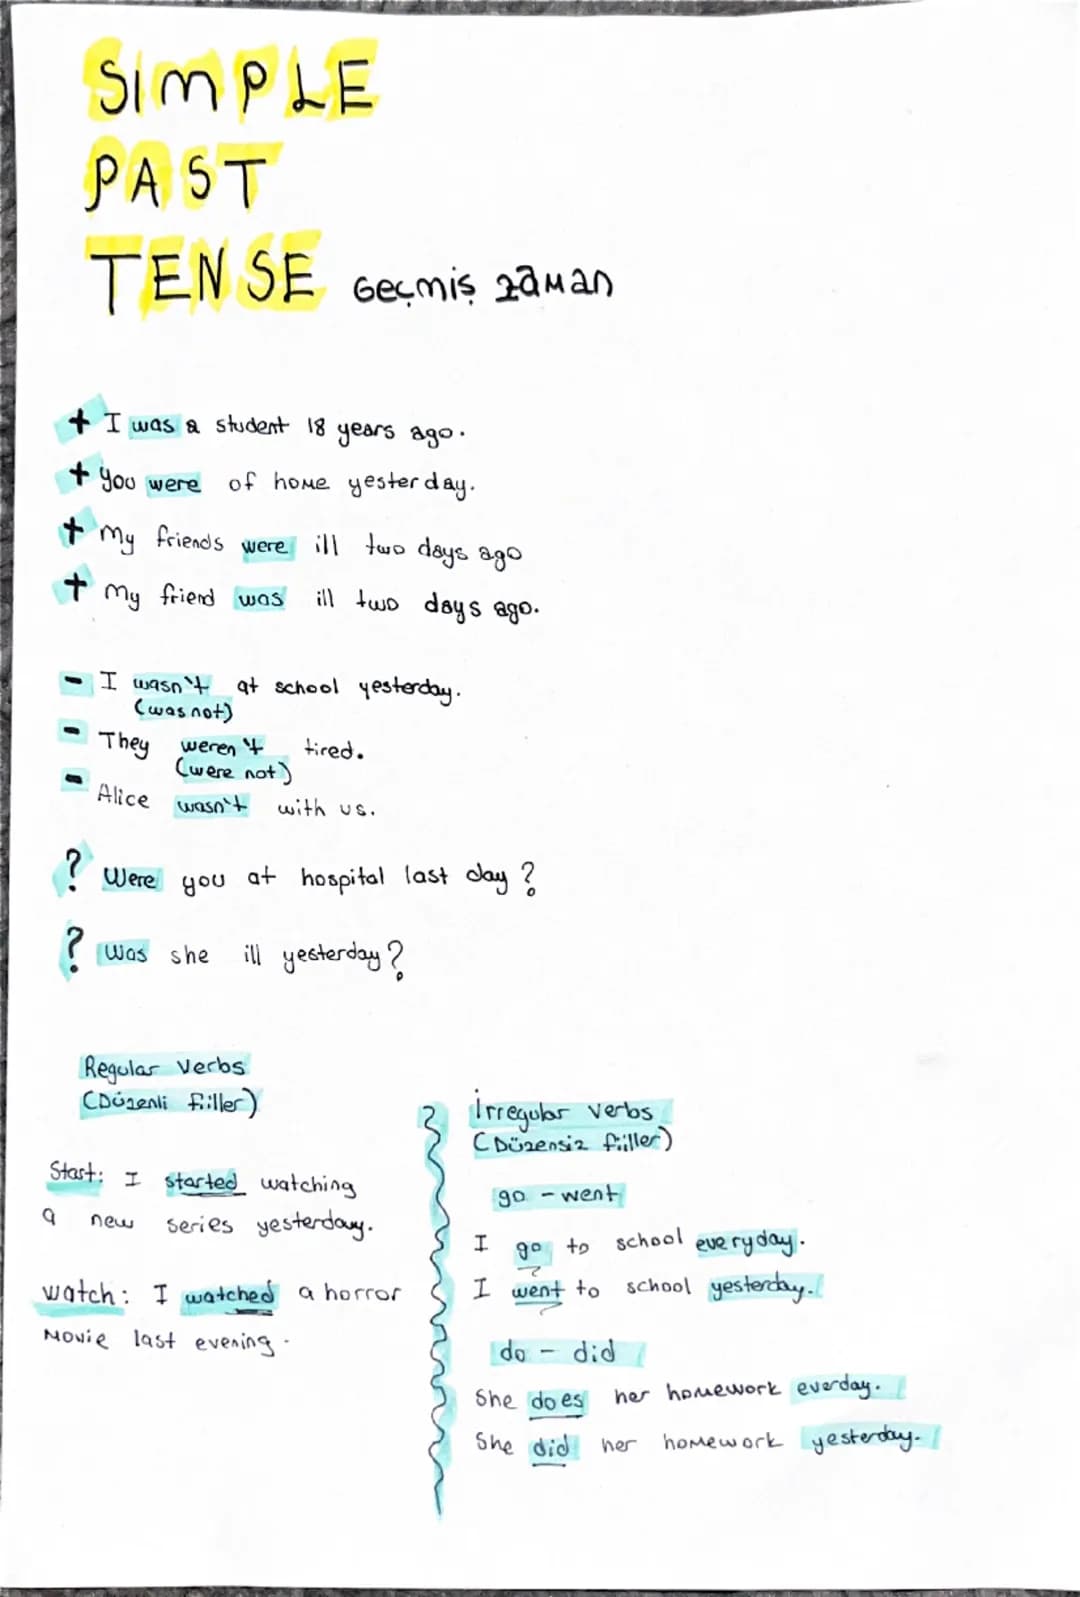 SIMPLE
PAST
TENSE Geçmiş zaman
+ I was a student 18 years ago.
+ you were of home yesterday.
+ My friends were ill two days ago
+ My friend was ill two days ago.
- I wasn't at school yesterday.
(was not)
- They weren't tired.
(were not)
- Alice wasn't with us.
? Were you at hospital last day?
? Was she ill yesterday?
Regular Verbs
(Düzenli fiiller)
Start: I started watching
a new series yesterday.
watch: I watched a horror
Movie last evening.
İrregular verbs
(Düzensiz fiiller)
go - went
I go to school everyday.
I went to school yesterday.
do - did
She does her homework everday.
She did her homework yesterday.